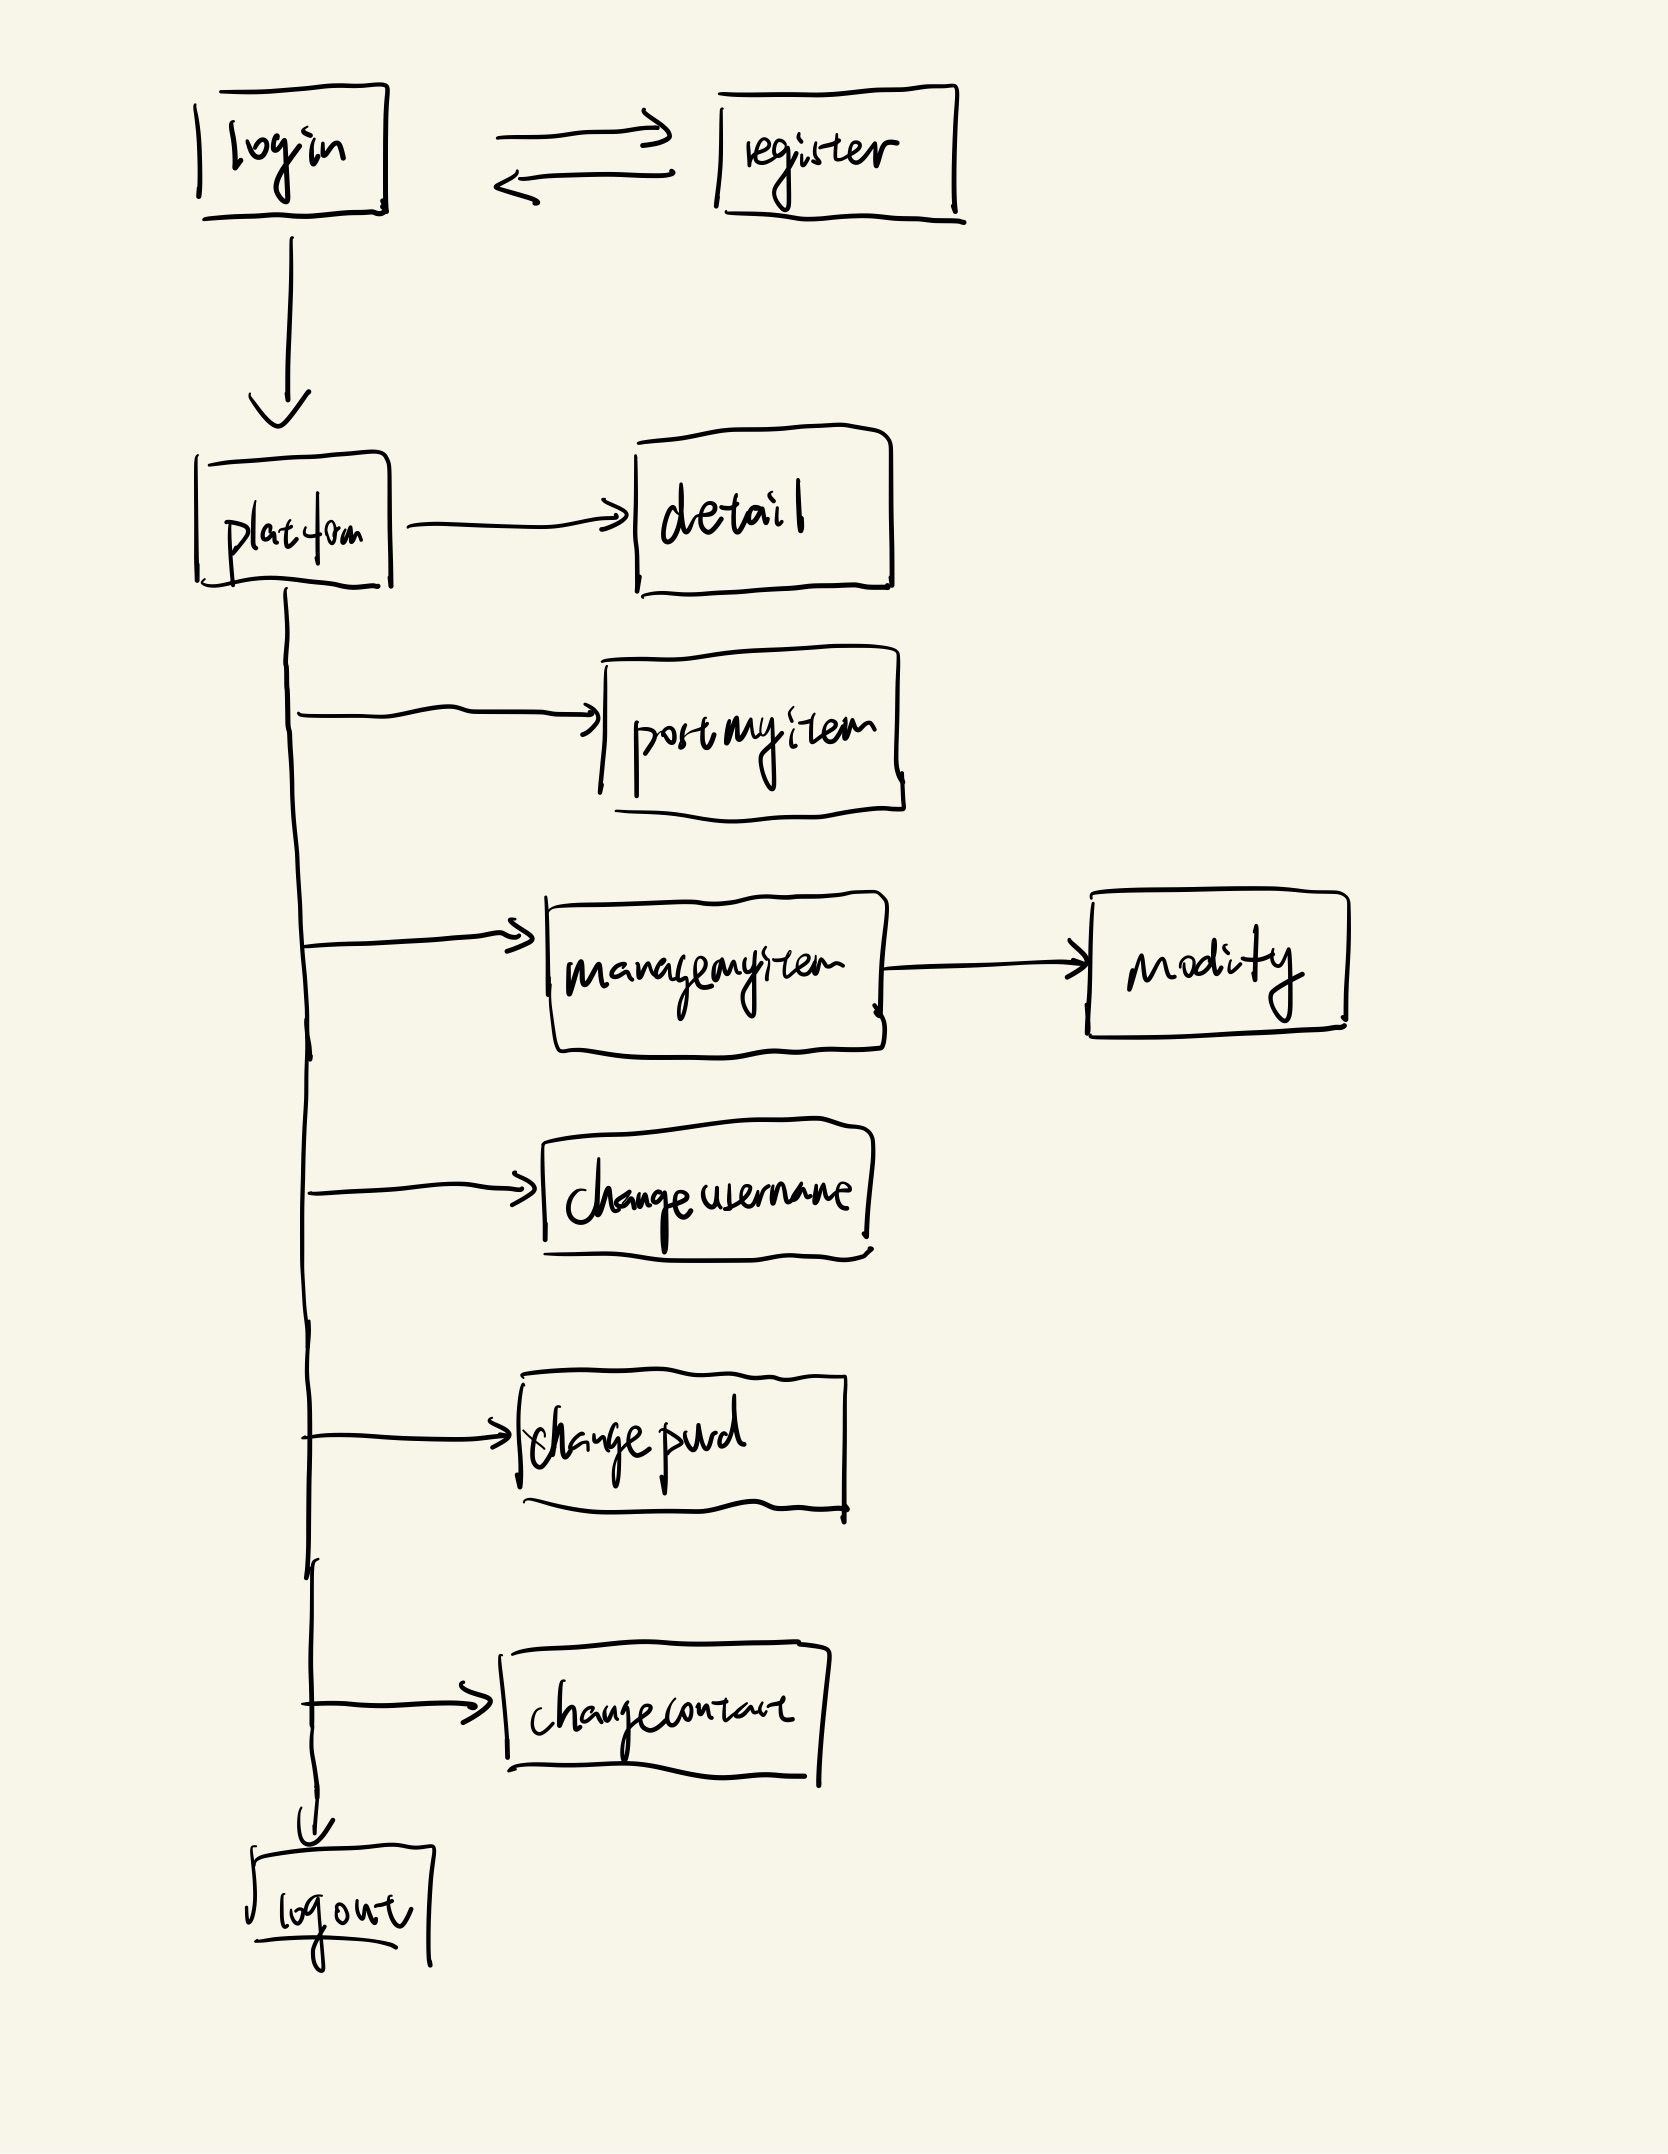 login
register
platform
detail
postmyitem
managemyitem
modify
changeusername
changepwd
changecontact
logout